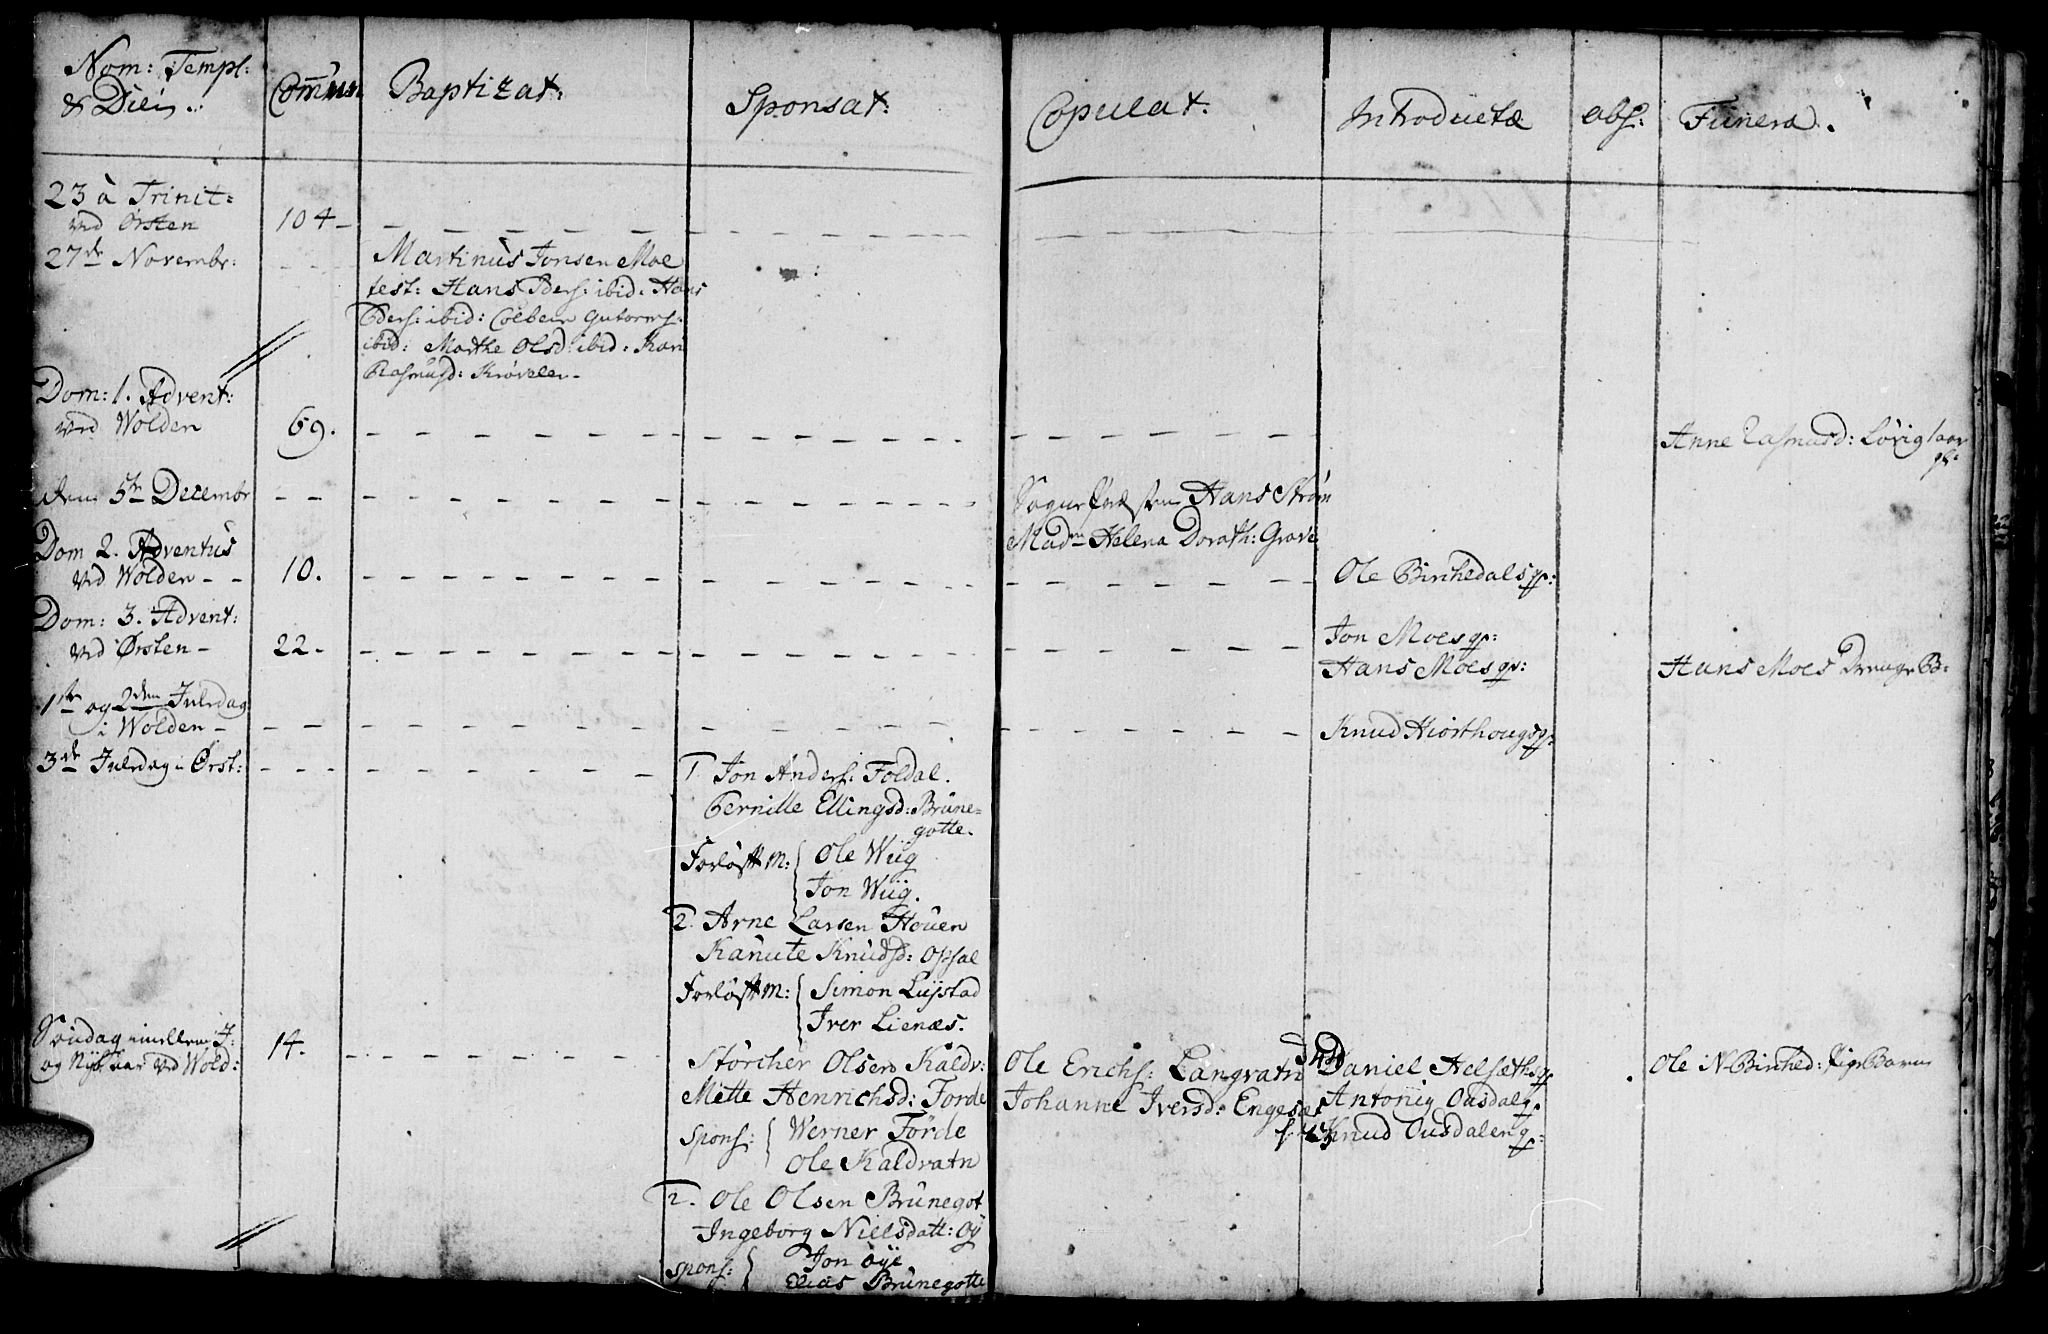 Nom: Templ:
& Diei.:
Commun
Baptizat:
Sponsat:
Copulat:
Introductæ
abs:
Funera.
23 à Trinit:
ved Ørsten
104
27de Novembr:
Martinus Jonsen Moe
test: Hans Peders: ibid: Hans
Peders: ibid: Colbein Gutorms:
ibid: Marthe Olsd: ibid: Kari
Rasmusd: Krøvelen
Dom: 1. Advent:
ved Wolden
69.
Anne Rasmusd: Løvig
Den 5te Decembr
Hans Strøm
Madm Helena Doroth: Grave
Dom 2. Adventus
ved Wolden
10.
Ole Birchedals qv:
Dom: 3. Advent:
ved Ørsten
22.
Jon Moes qv:
Hans Moes qv:
Hans Moes Drenge B:
1te og 2den Juledag
i Wolden
Knud Hiorthougs qv:
3die Juledag i Ørst:
1. Jon Anders: Foldal.
Pernille Ellingsd: Brune-
gotte.
Forløft M: { Ole Wiig
Jon Wiig.
2. Arne Larsen Houen
Kanute Knudsd: Opsal
Forløft M: { Simon Lystad
Iver Lienæs.
Søndag imellem J:
og Nyt aar ved Wold:
14.
Størcher Olsen Kaldv:
Mette Henrichsd: Forde
spons: { Werner Førde
Ole Kaldvatn
2. Ole Olsen Brunegot
Ingeborg Nielsdatt: Øy
spons: { Jon Øye
Elias Brunegotte
Ole Erichs: Langvatn
Johanne Iversd: Engeset
Daniel Helsæths qv
Antoniy Ousdal qv.
Knud Ousdalen qv:
Ole N. Birched: Pige Barn